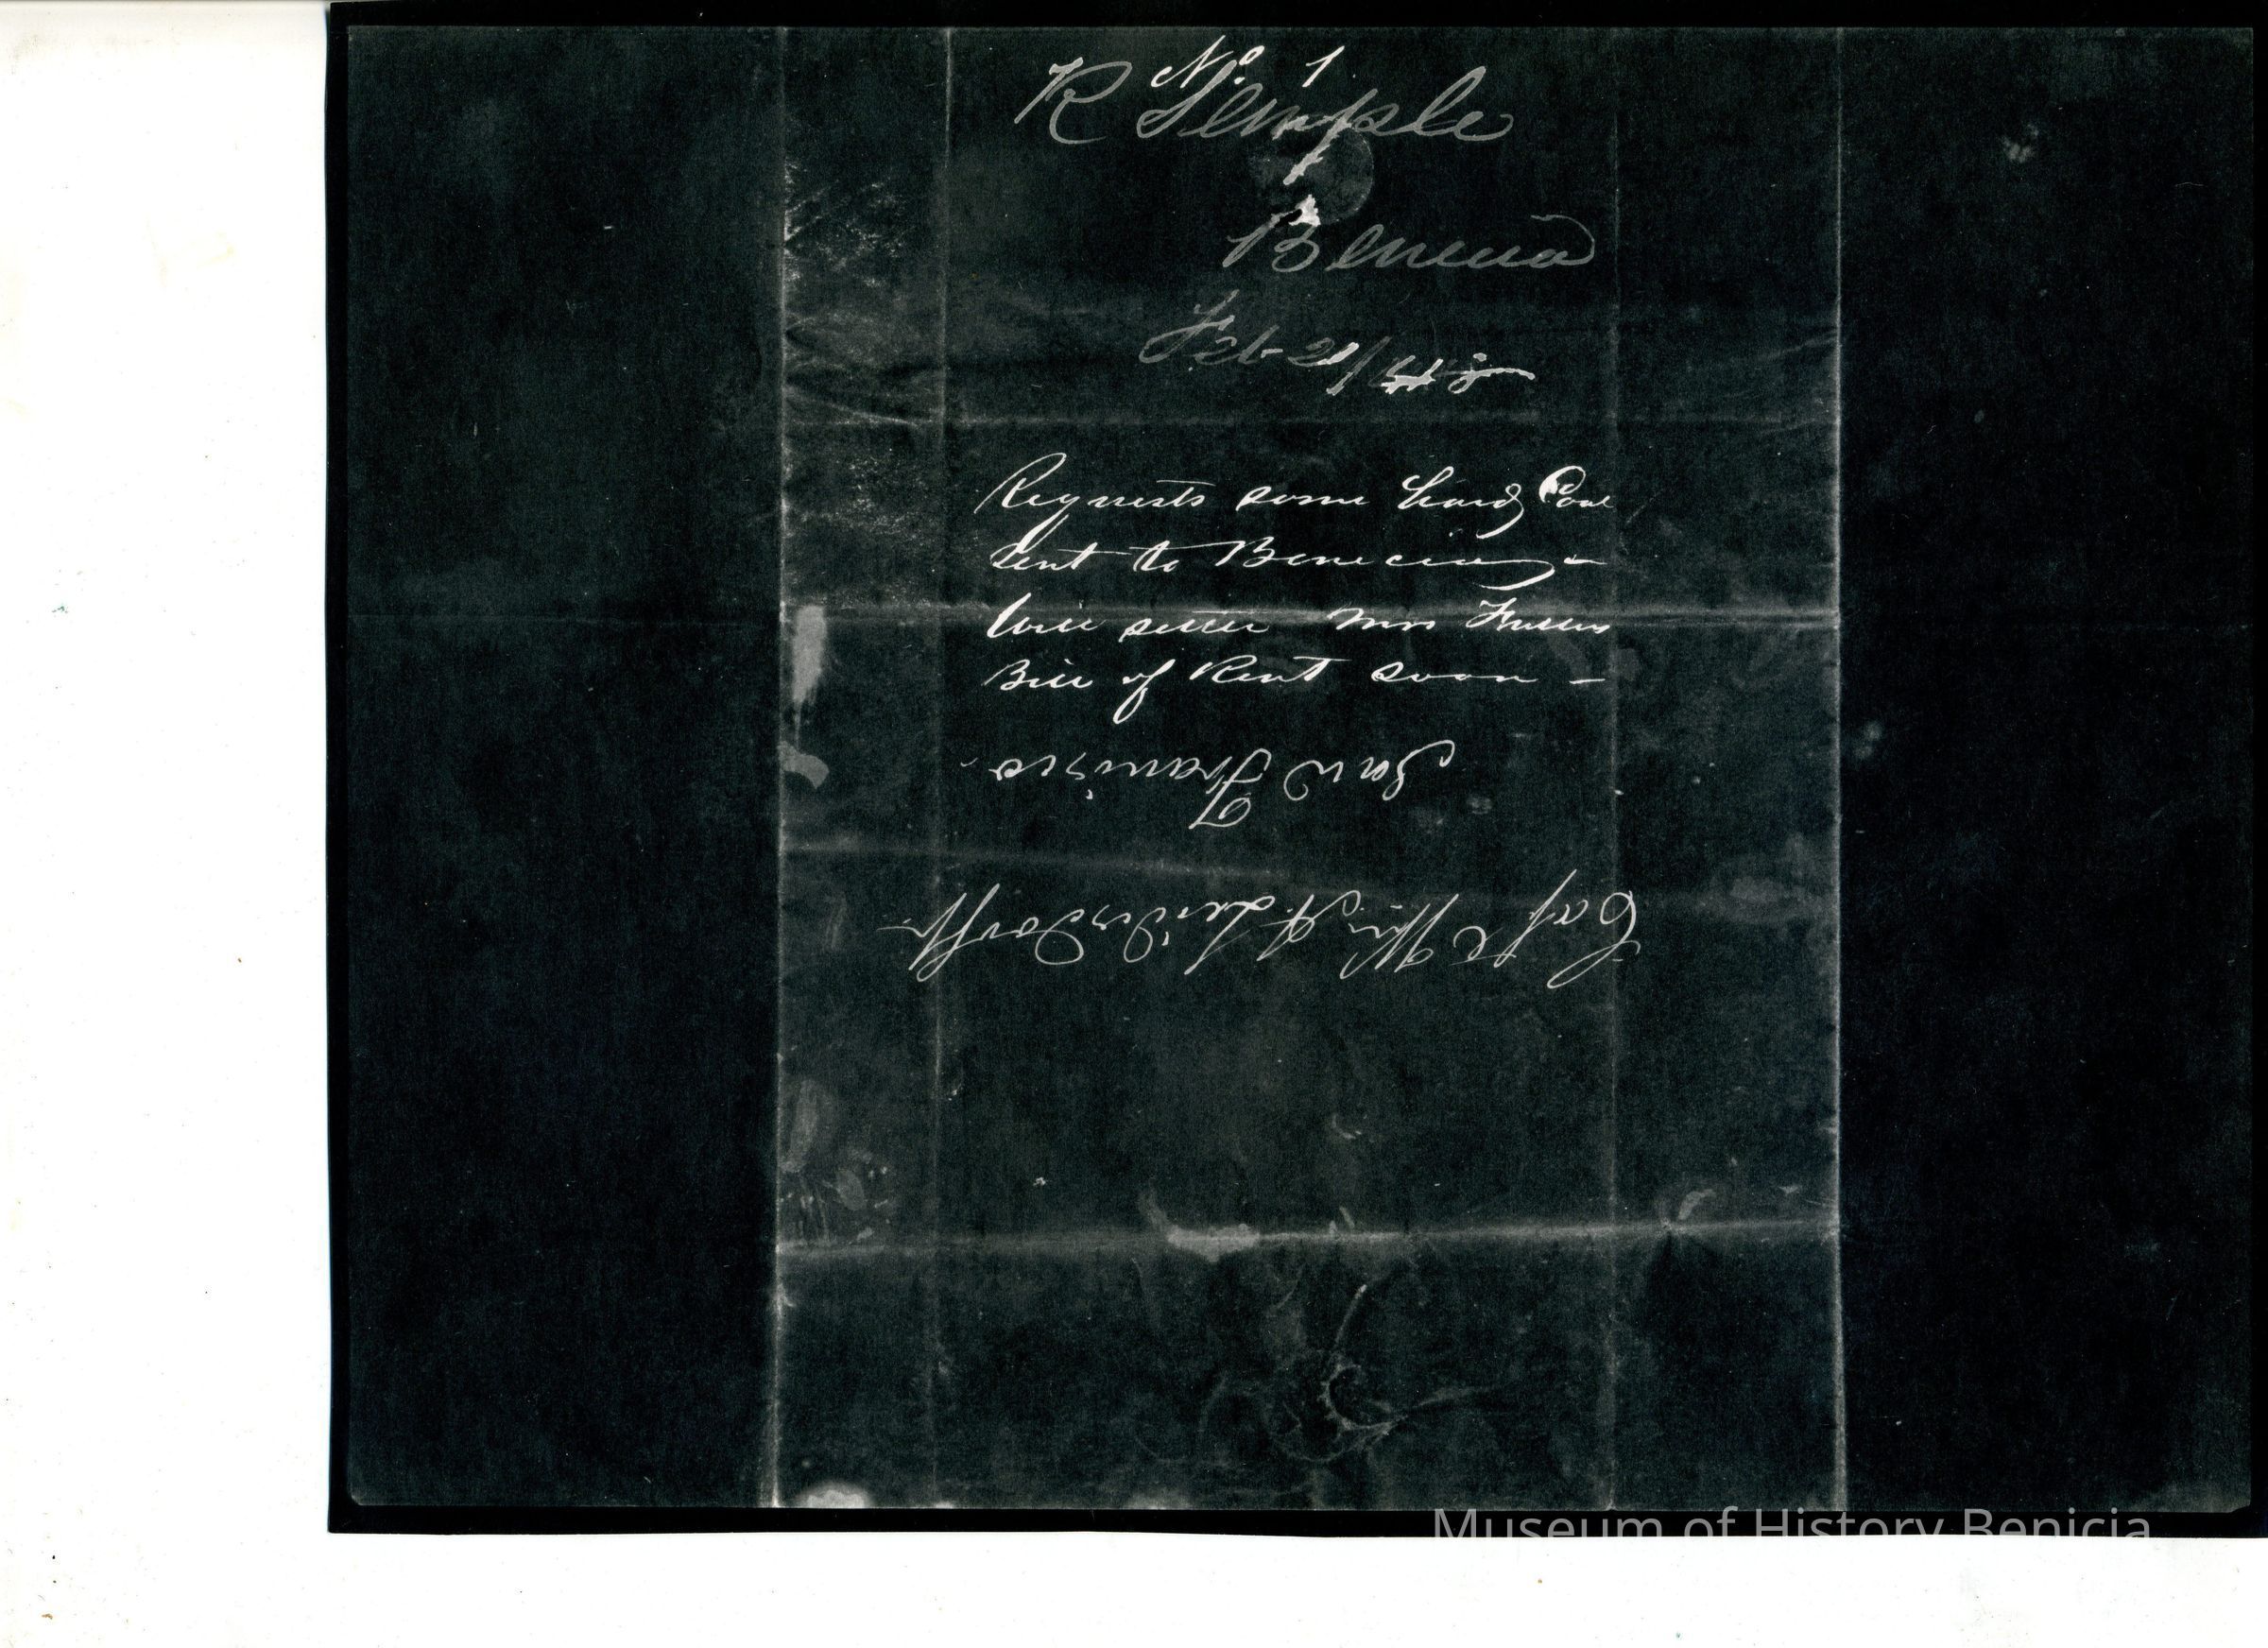 No. 1
R Semple
Benicia
Feb 21/48
Requests some hard Coal
Sent to Benicia -
Will settle Mrs
Bill of Rent soon -
San Francisco.
Capt Wm. A. Leidesdorff
Museum of History Benicia